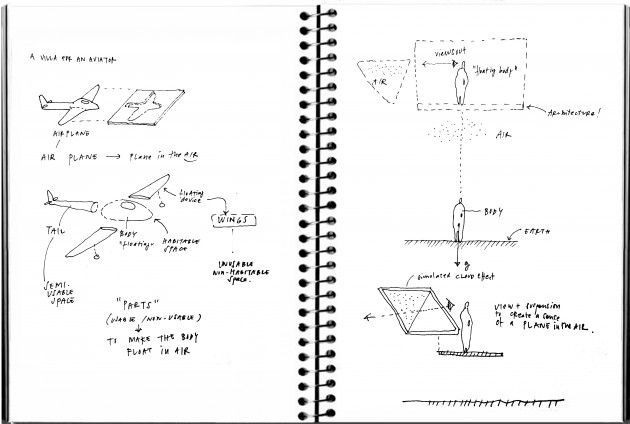 A VILLA FOR AN AVIATOR
AIRPLANE
AIR PLANE → Plane in the AIR
floating
device
WINGS
TAIL
BODY
"floating"
HABITABLE
SPACE
SEMI-
USABLE
SPACE
UNUSABLE
NON-HABITABLE
SPACE.
"PARTS"
(USABLE / NON-USABLE)
TO MAKE THE BODY
FLOAT IN AIR
VIEWS OUT
AIR
"floating body"
ARCHITECTURE!
AIR
BODY
EARTH
g
simulated cloud effect
view + suspension
to create a sense
of a PLANE in the AIR.